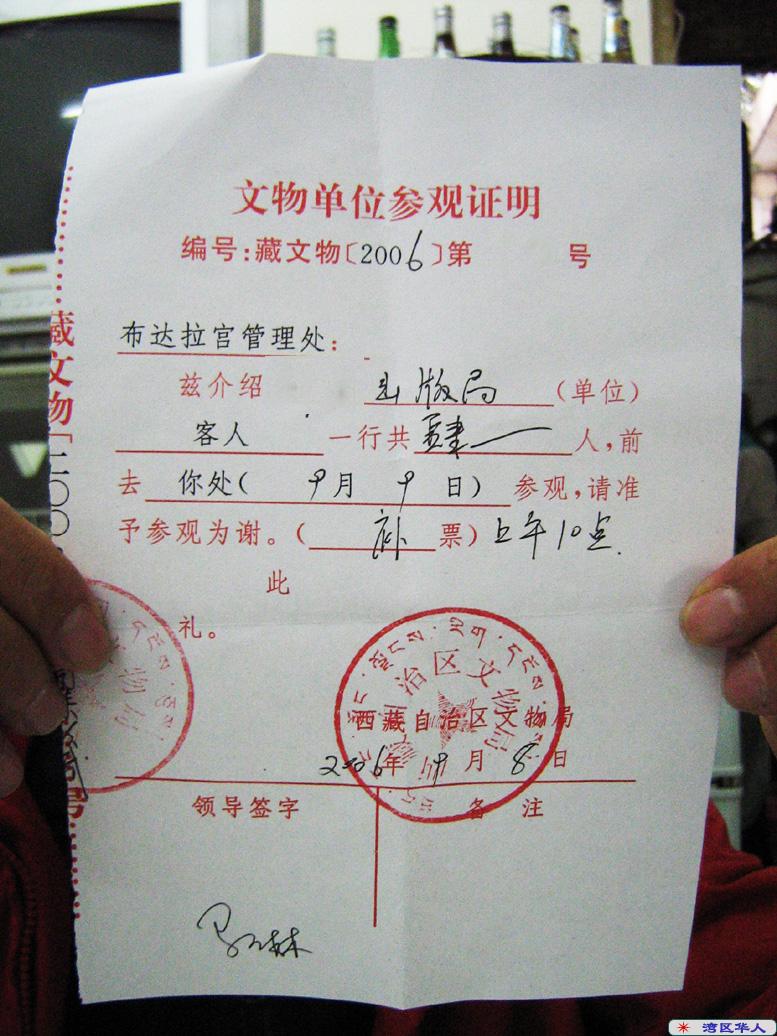 文物单位参观证明
编号:藏文物〔2006〕第 号
布达拉宫管理处:
兹介绍 出版局 (单位)
客人 一行共 肆 人,前
去 你处( 9月 9 日) 参观,请准
予参观为谢。( 补 票) 上午10点.
此
礼。
西藏自治区文物局
2006年 9 月 8 日
领导签字 备 注
藏文物
湾区华人